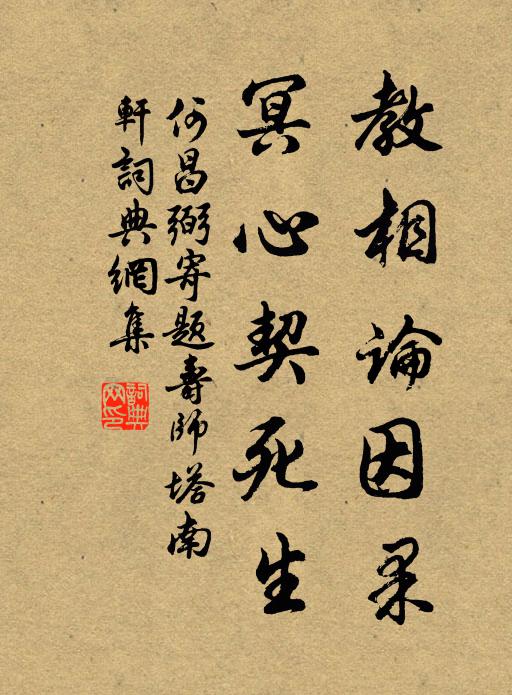 教相論因果
冥心契死生
何昌弼寄題壽師塔南
軒詞典網集
詞典
网印